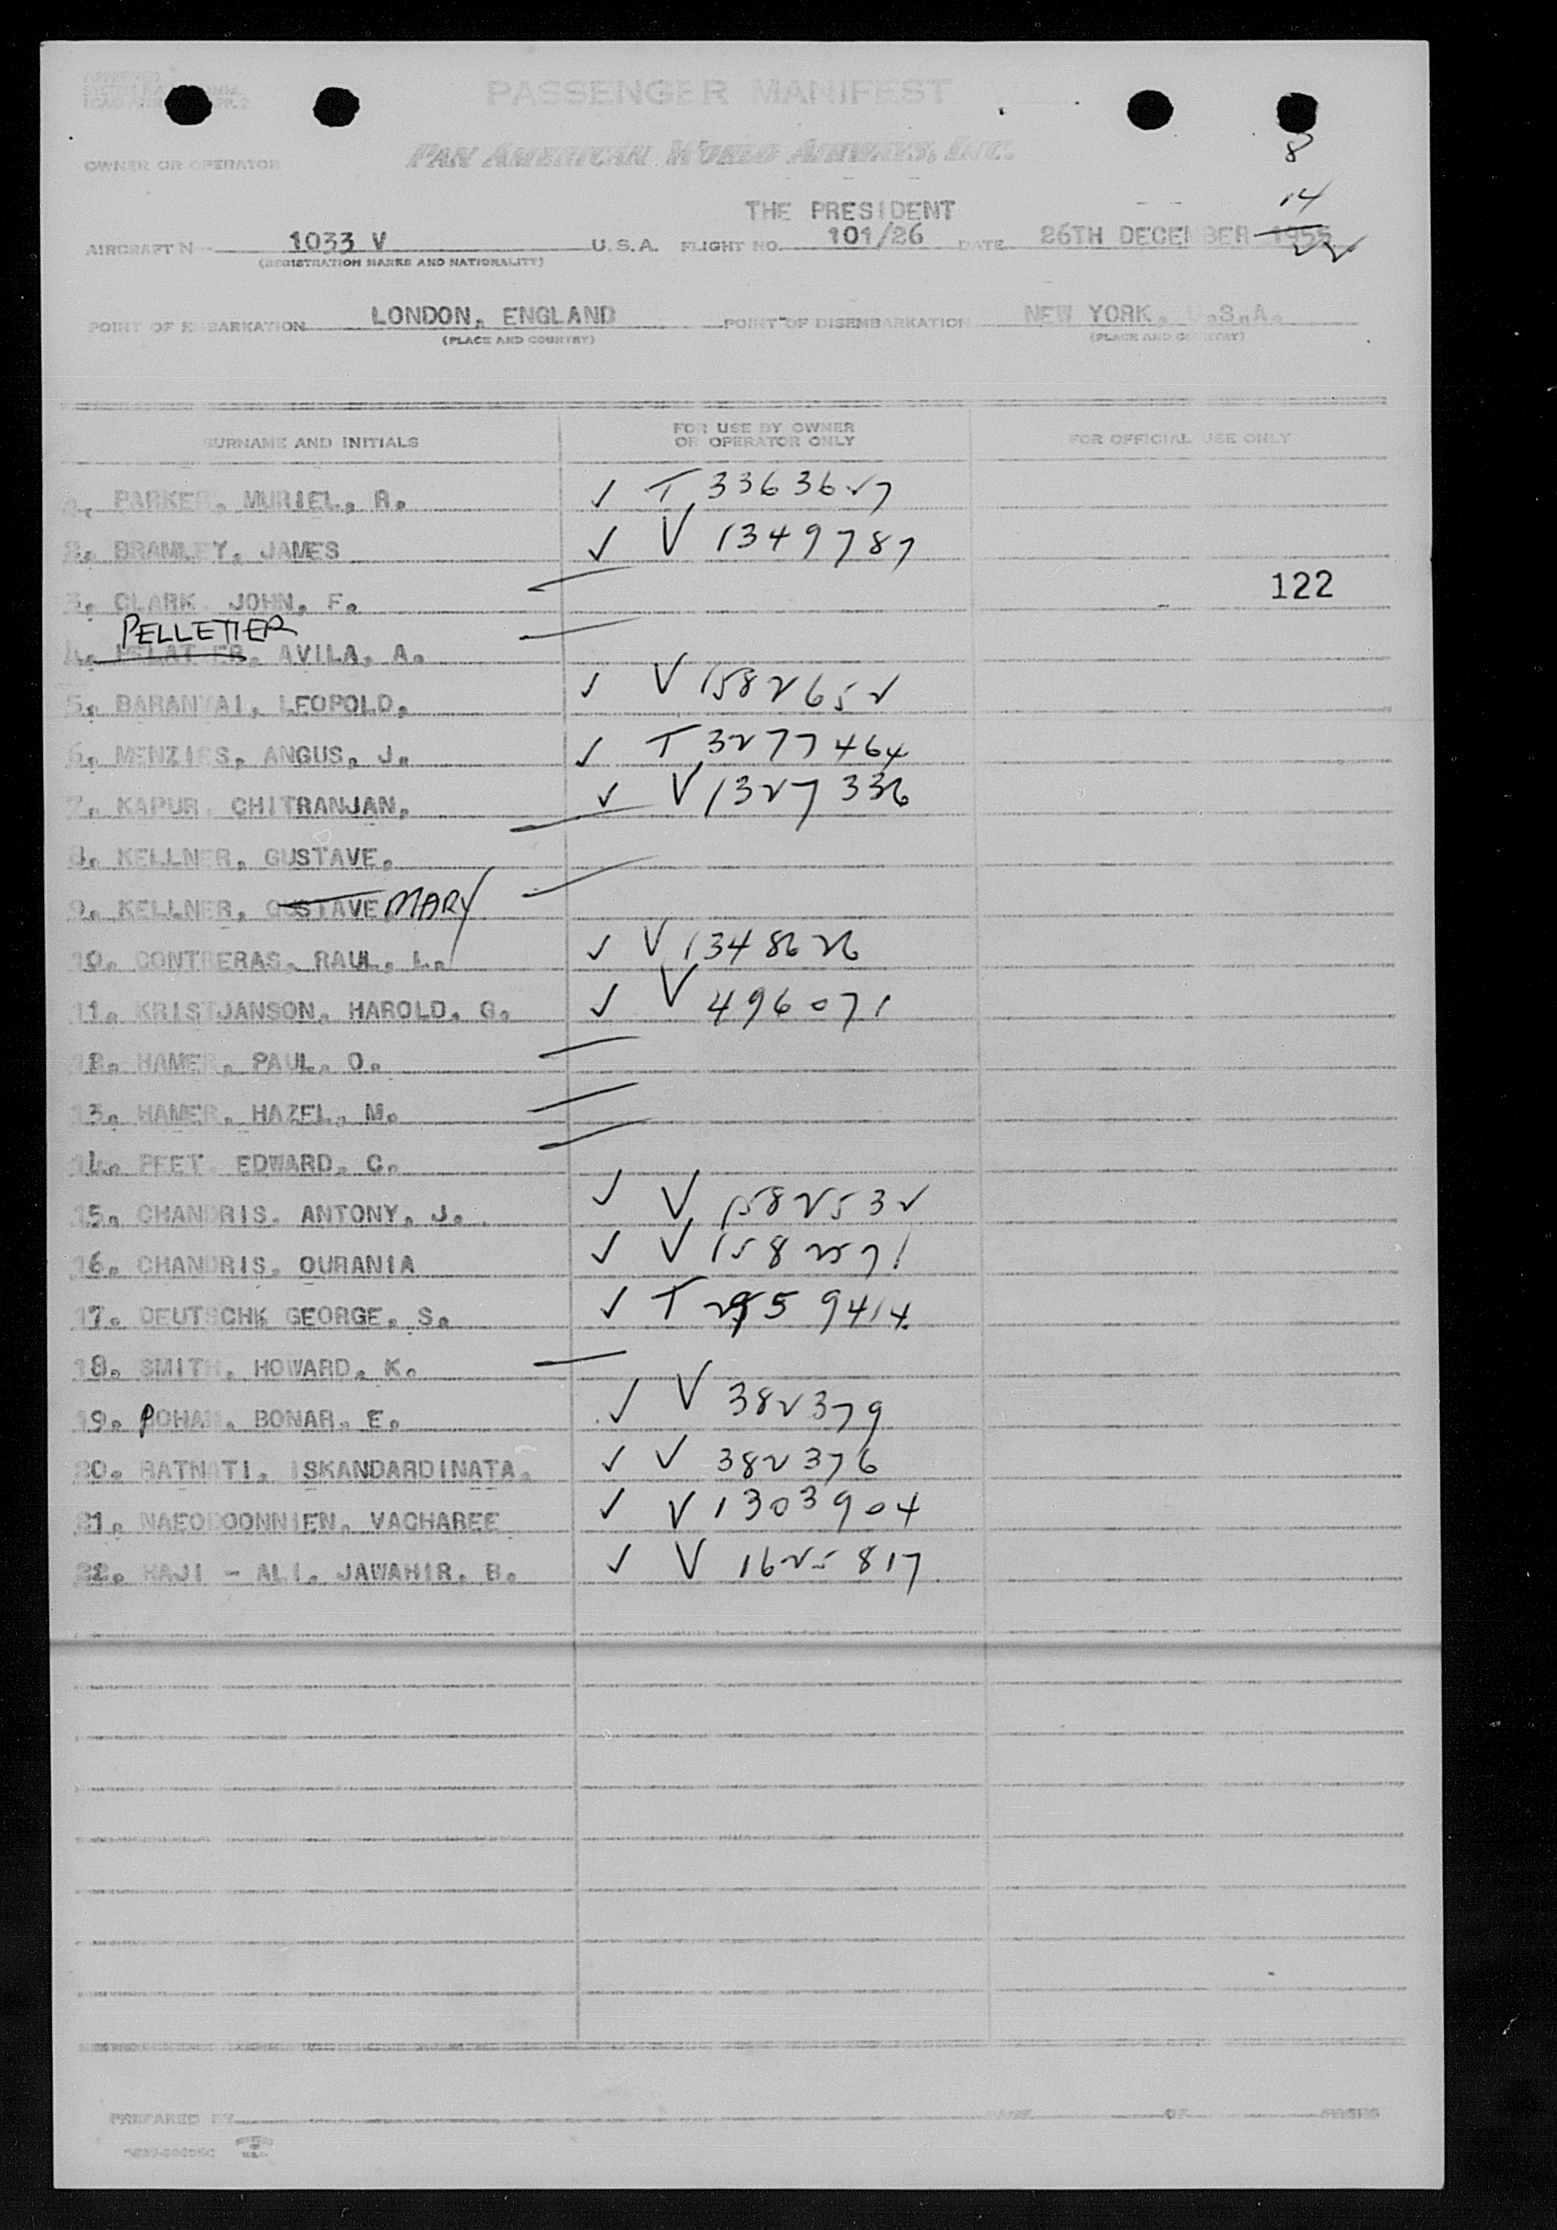 PASSENGER MANIFEST
OWNER OR OPERATOR PAN AMERICAN WORLD AIRWAYS, INC.
8
14
22
THE PRESIDENT
AIRCRAFT N 1033 V U.S.A. FLIGHT NO. 101/26 DATE 26TH DECEMBER 1955
(REGISTRATION MARKS AND NATIONALITY)
POINT OF EMBARKATION LONDON, ENGLAND POINT OF DISEMBARKATION NEW YORK, U.S.A.
(PLACE AND COUNTRY) (PLACE AND COUNTRY)
SURNAME AND INITIALS FOR USE BY OWNER OR OPERATOR ONLY FOR OFFICIAL USE ONLY
1. PARKER, MURIEL, R. ✓ T 3363627
2. BRAMLEY, JAMES ✓ V 1349787
3. CLARK, JOHN, F. 122
PELLETIER
4. AVILA, A.
5. BARANYAI, LEOPOLD, ✓ V 1582652
6. MENZIES, ANGUS, J. ✓ T 3277464
7. KAPUR, CHITRANJAN, ✓ V 1327336
8. KELLNER, GUSTAVE,
9. KELLNER, GUSTAVE, MARY
10. CONTRERAS, RAUL, L. ✓ V 1348626
11. KRISTJANSON, HAROLD, G. ✓ V 496071
12. HAMER, PAUL, O.
13. HAMER, HAZEL, M.
14. PEET, EDWARD, C.
15. CHANDRIS, ANTONY, J. ✓ V 1582532
16. CHANDRIS, OURANIA ✓ V 1582571
17. DEUTSCHK GEORGE, S. ✓ T 2959414
18. SMITH, HOWARD, K.
19. POHAN, BONAR, E. ✓ V 382379
20. RATNATI, ISKANDARDINATA, ✓ V 382376
21. NAEOBOONNIEN, VACHAREE ✓ V 1303904
22. HAJI - ALI, JAWAHIR, B. ✓ V 1625817
PREPARED BY PAGE OF PAGES